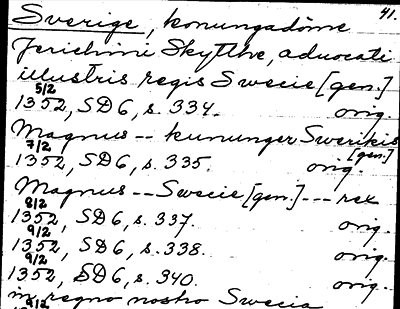 Sverige, konungadöme 41.
Jerichini Skytthe, advocati
illustris regis Swecie [gen.]
5/2
1352, SD6, s. 334. orig.
Magnus -- kununger Swerikis
7/2 [gen.]
1352, SD6, s. 335. orig.
Magnus -- Swecie [gen.] --- rex
8/2
1352, SD6, s. 337. orig.
9/2
1352, SD6, s. 338. orig.
9/2
1352, SD6, s. 340. orig.
in regno nostro Swecia
9/2